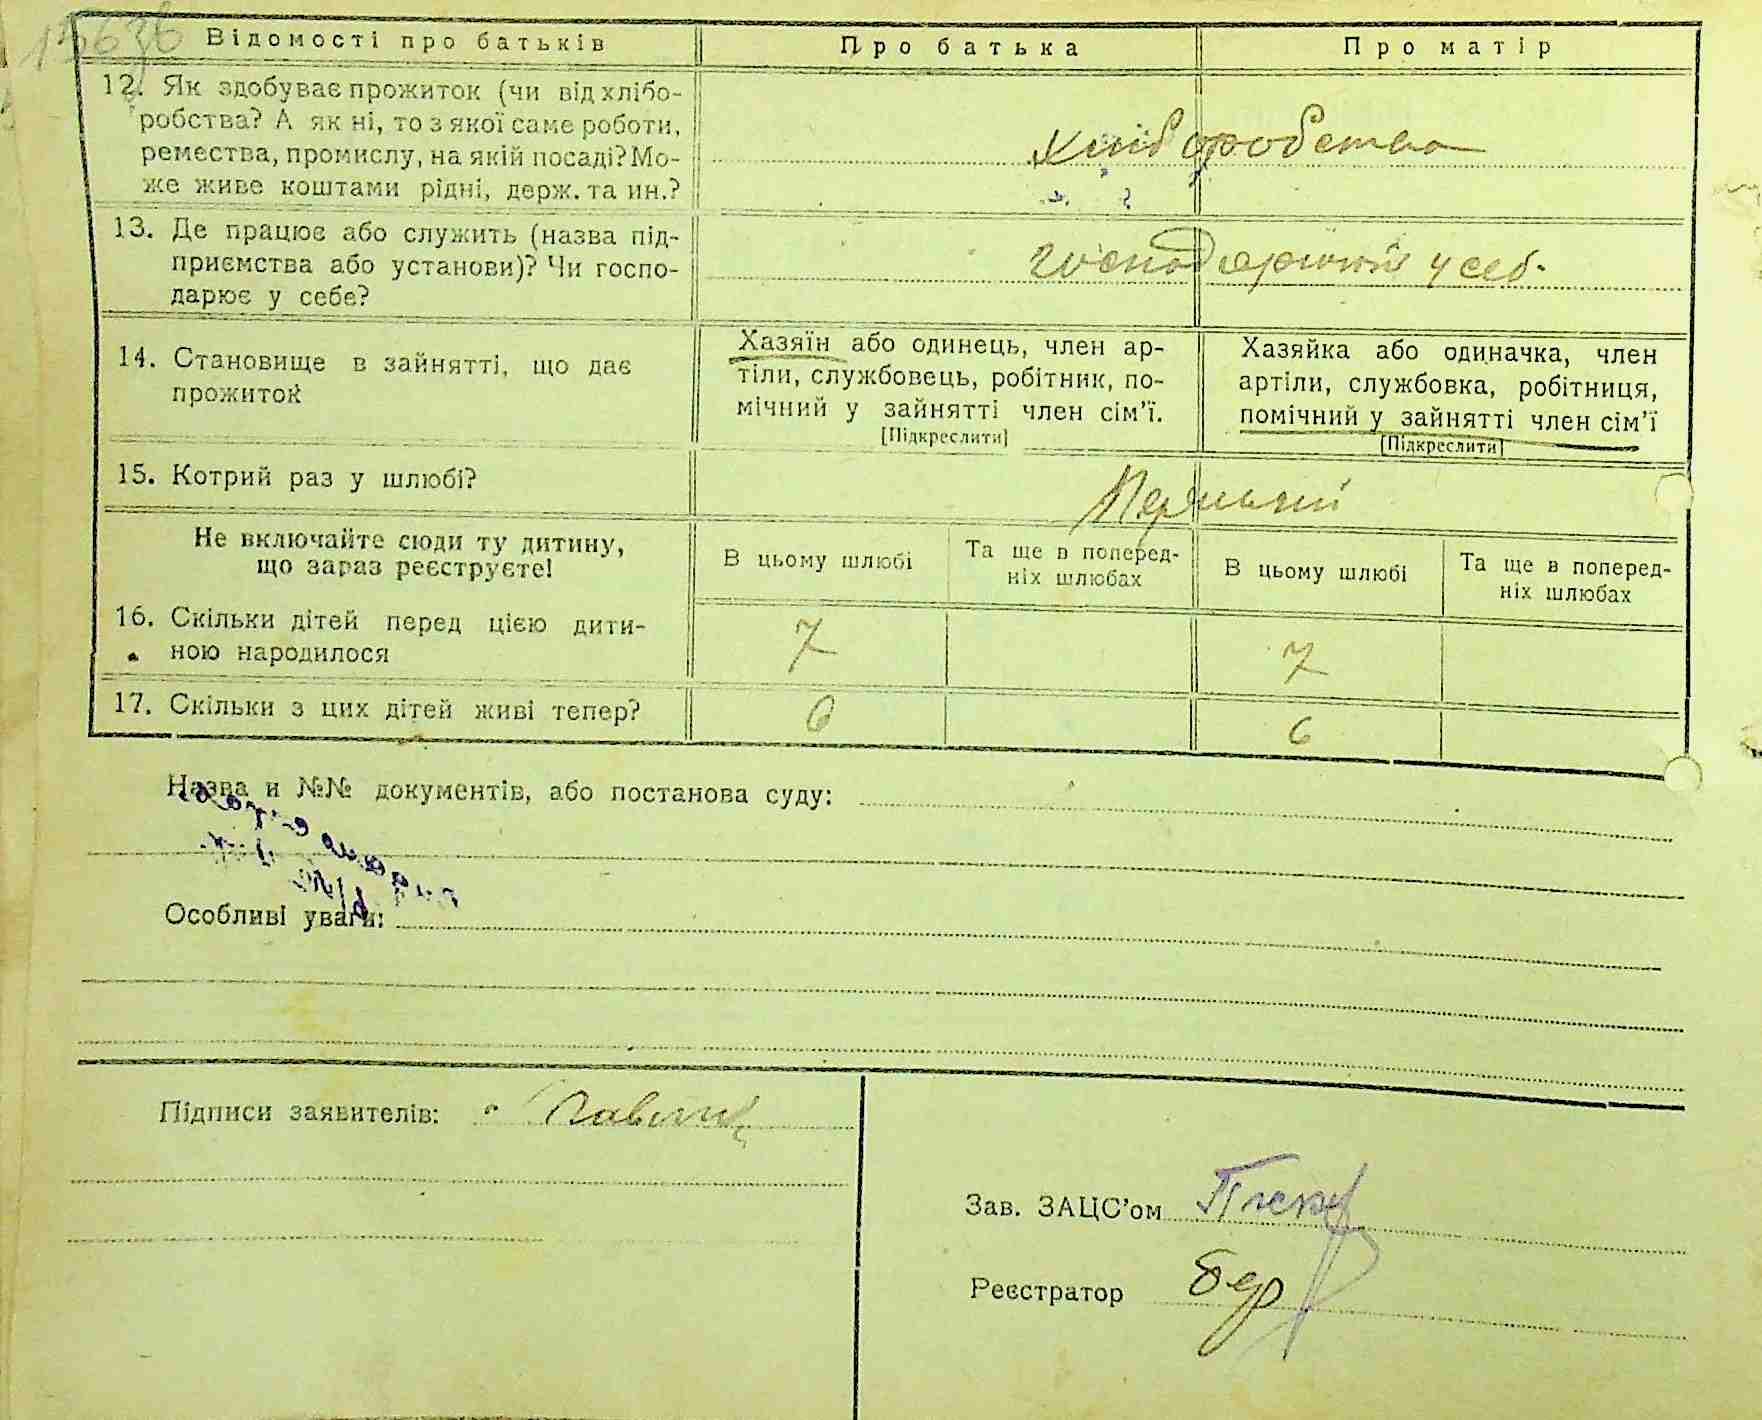 Відомості про батьків
Про батька
Про матір
12. Як здобуває прожиток (чи від хлібо-
робства? А як ні, то з якої саме роботи,
ремества, промислу, на якій посаді? Мо-
же живе коштами рідні, держ. та ин.?
хліборобства
13. Де працює або служить (назва під-
приємства або установи)? Чи госпо-
дарює у себе?
у себ.
14. Становище в зайнятті, що дає
прожиток
Хазяїн або одинець, член ар-
тіли, службовець, робітник, по-
мічний у зайнятті член сім’ї.
[Підкреслити]
Хазяйка або одиначка, член
артіли, службовка, робітниця,
помічний у зайнятті член сім’ї
[Підкреслити]
15. Котрий раз у шлюбі?
Первый
Не включайте сюди ту дитину,
що зараз реєструєте!
В цьому шлюбі
Та ще в поперед-
ніх шлюбах
В цьому шлюбі
Та ще в поперед-
ніх шлюбах
16. Скільки дітей перед цією дити-
ною народилося
7
7
17. Скільки з цих дітей живі тепер?
6
6
Назва и №№ документів, або постанова суду:
Особливі уваги:
Підписи заявителів:
Зав. ЗАЦС’ом
Реєстратор